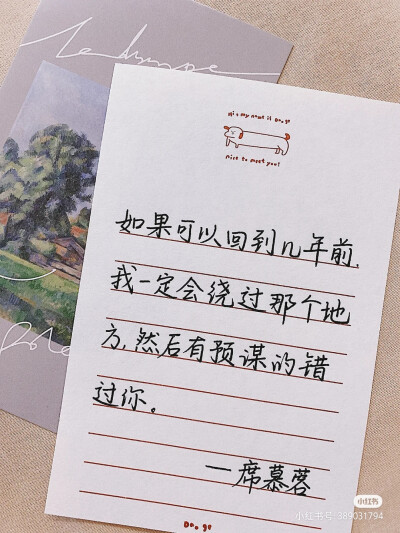 Hi ~ my name is Do.ge
nice to meet you!
如果可以回到几年前.
我一定会绕过那个地
方,然后有预谋的错
过你。
—席慕蓉
Do.ge
小红书
小红书号:389031794